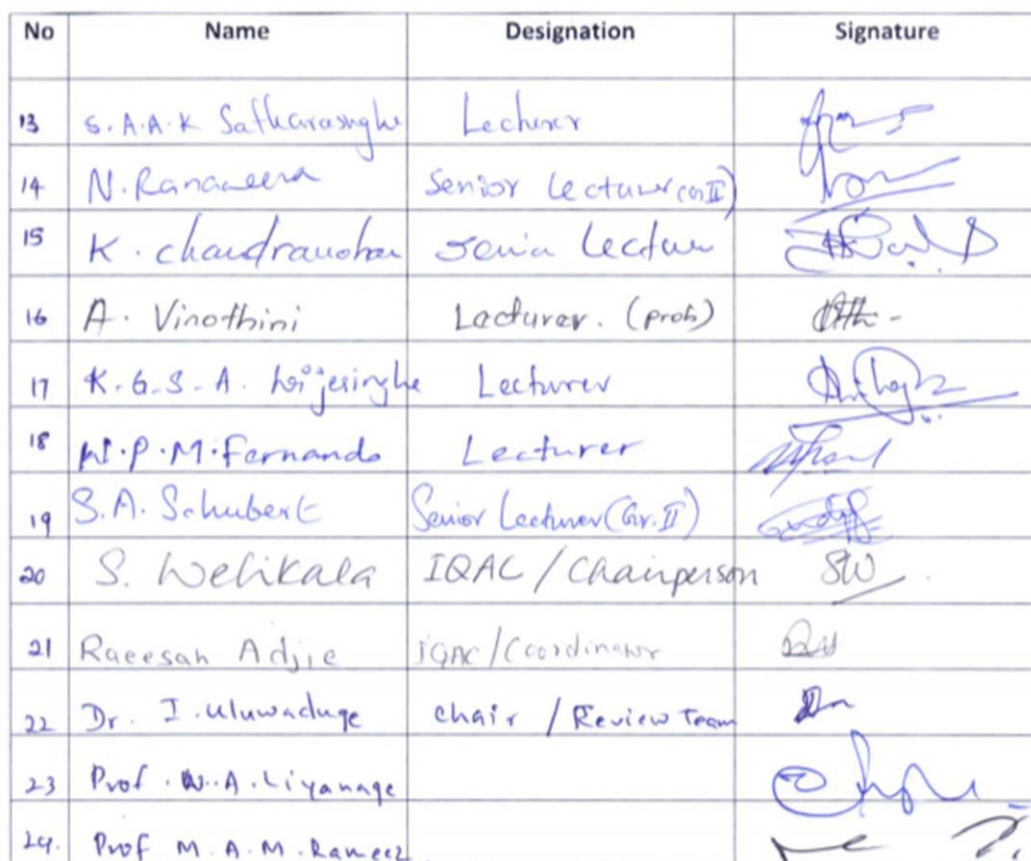 No Name Designation Signature
13 S.A.A.K Satharasinghe Lecturer
14 N. Ranaweera Senior Lecturer (Gr II)
15 K. Chandramohan Senior Lecturer
16 A. Vinothini Lecturer. (prob)
17 K.G.S.A. Wijesinghe Lecturer
18 W.P.M. Fernando Lecturer
19 S.A. Schubert Senior Lecturer (Gr. II)
20 S. Welikala IQAC / Chairperson SW
21 Raeesah Adjie IQAC / Coordinator
22 Dr. I. Uluwaduge chair / Review Team
23 Prof. W.A. Liyanage
24. Prof M.A.M. Rameez